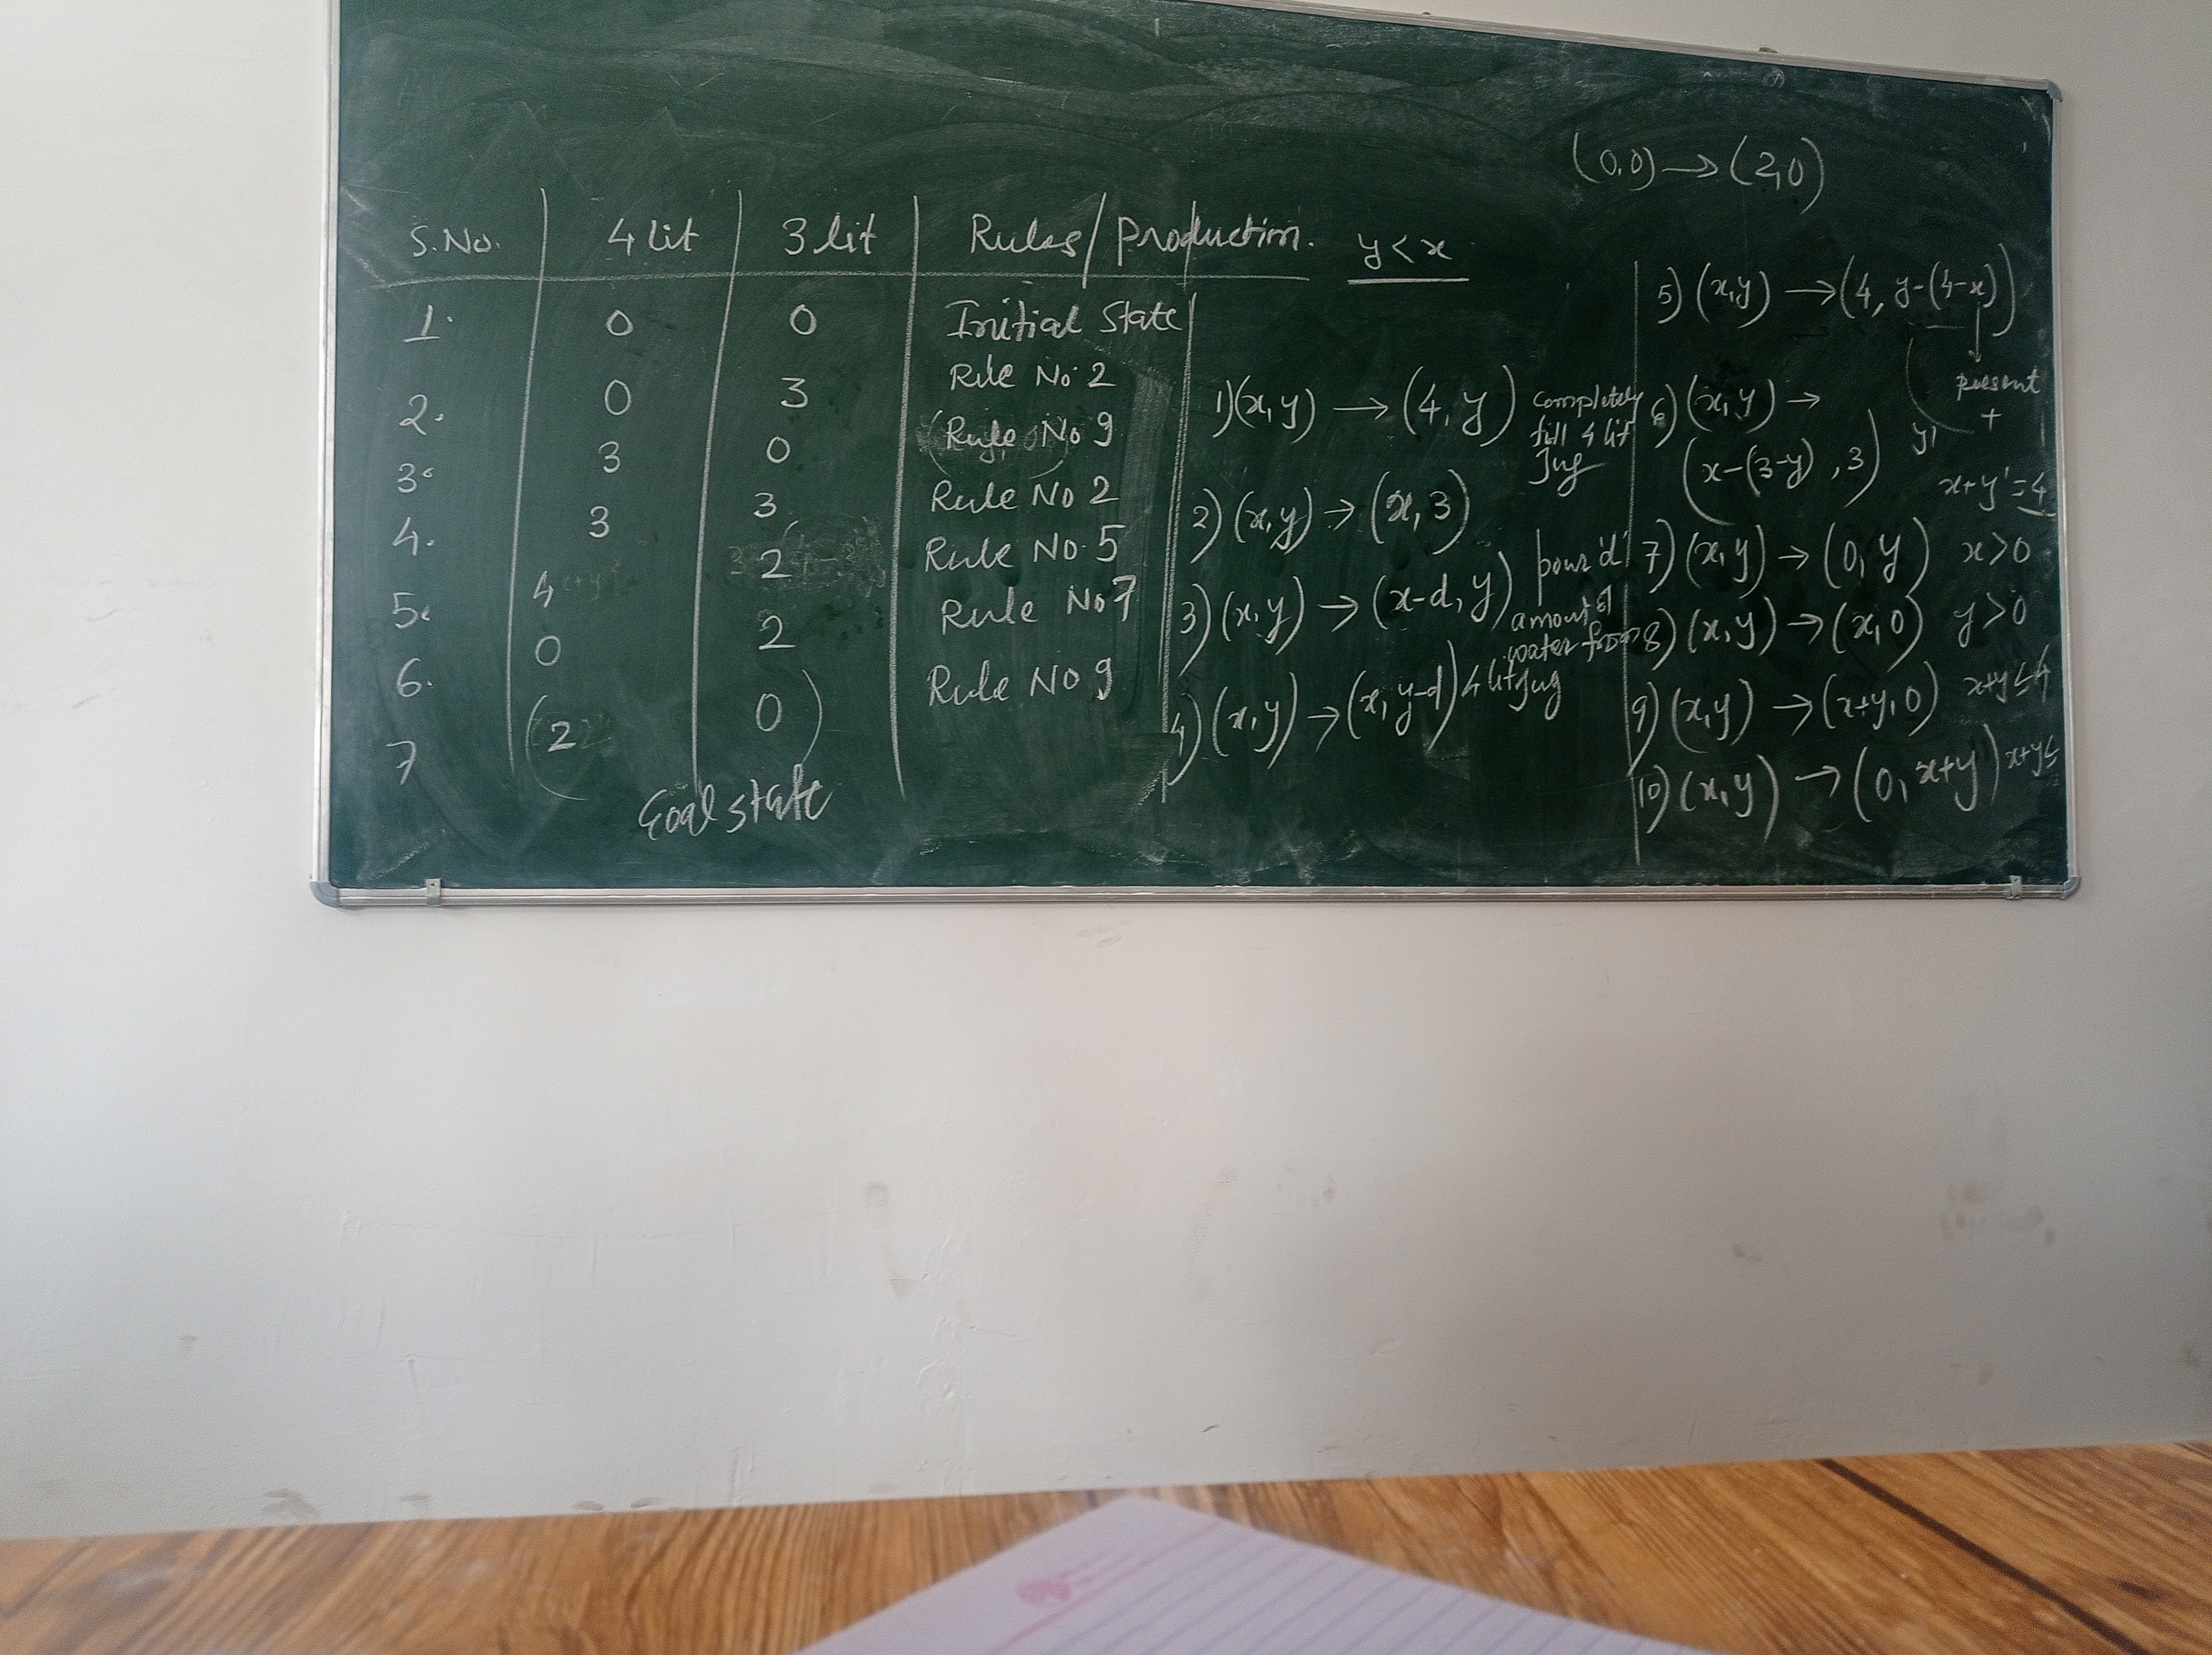 (0,0) → (2,0)
S.No. 4 lit 3 lit Rules/Production. y<x
1. 0 0 Initial State
2. 0 3 Rule No. 2
3. 3 0 Rule No 9
4. 3 3 Rule No 2
5. 4 2 Rule No. 5
6. 0 2 Rule No 7
7 (2 0) Rule No 9
Goal state
1) (x,y) → (4,y) completely
fill 4 lit
Jug
2) (x,y) → (x,3)
3) (x,y) → (x-d,y) pour 'd'
amount of
water from
4 lit Jug
4) (x,y) → (x,y-d)
5) (x,y) → (4, y-(4-x))
present
+
y'
x+y'=4
6) (x,y) →
(x-(3-y), 3)
7) (x,y) → (0,y) x>0
8) (x,y) → (x,0) y>0
9) (x,y) → (x+y,0) x+y≤4
10) (x,y) → (0, x+y) x+y≤